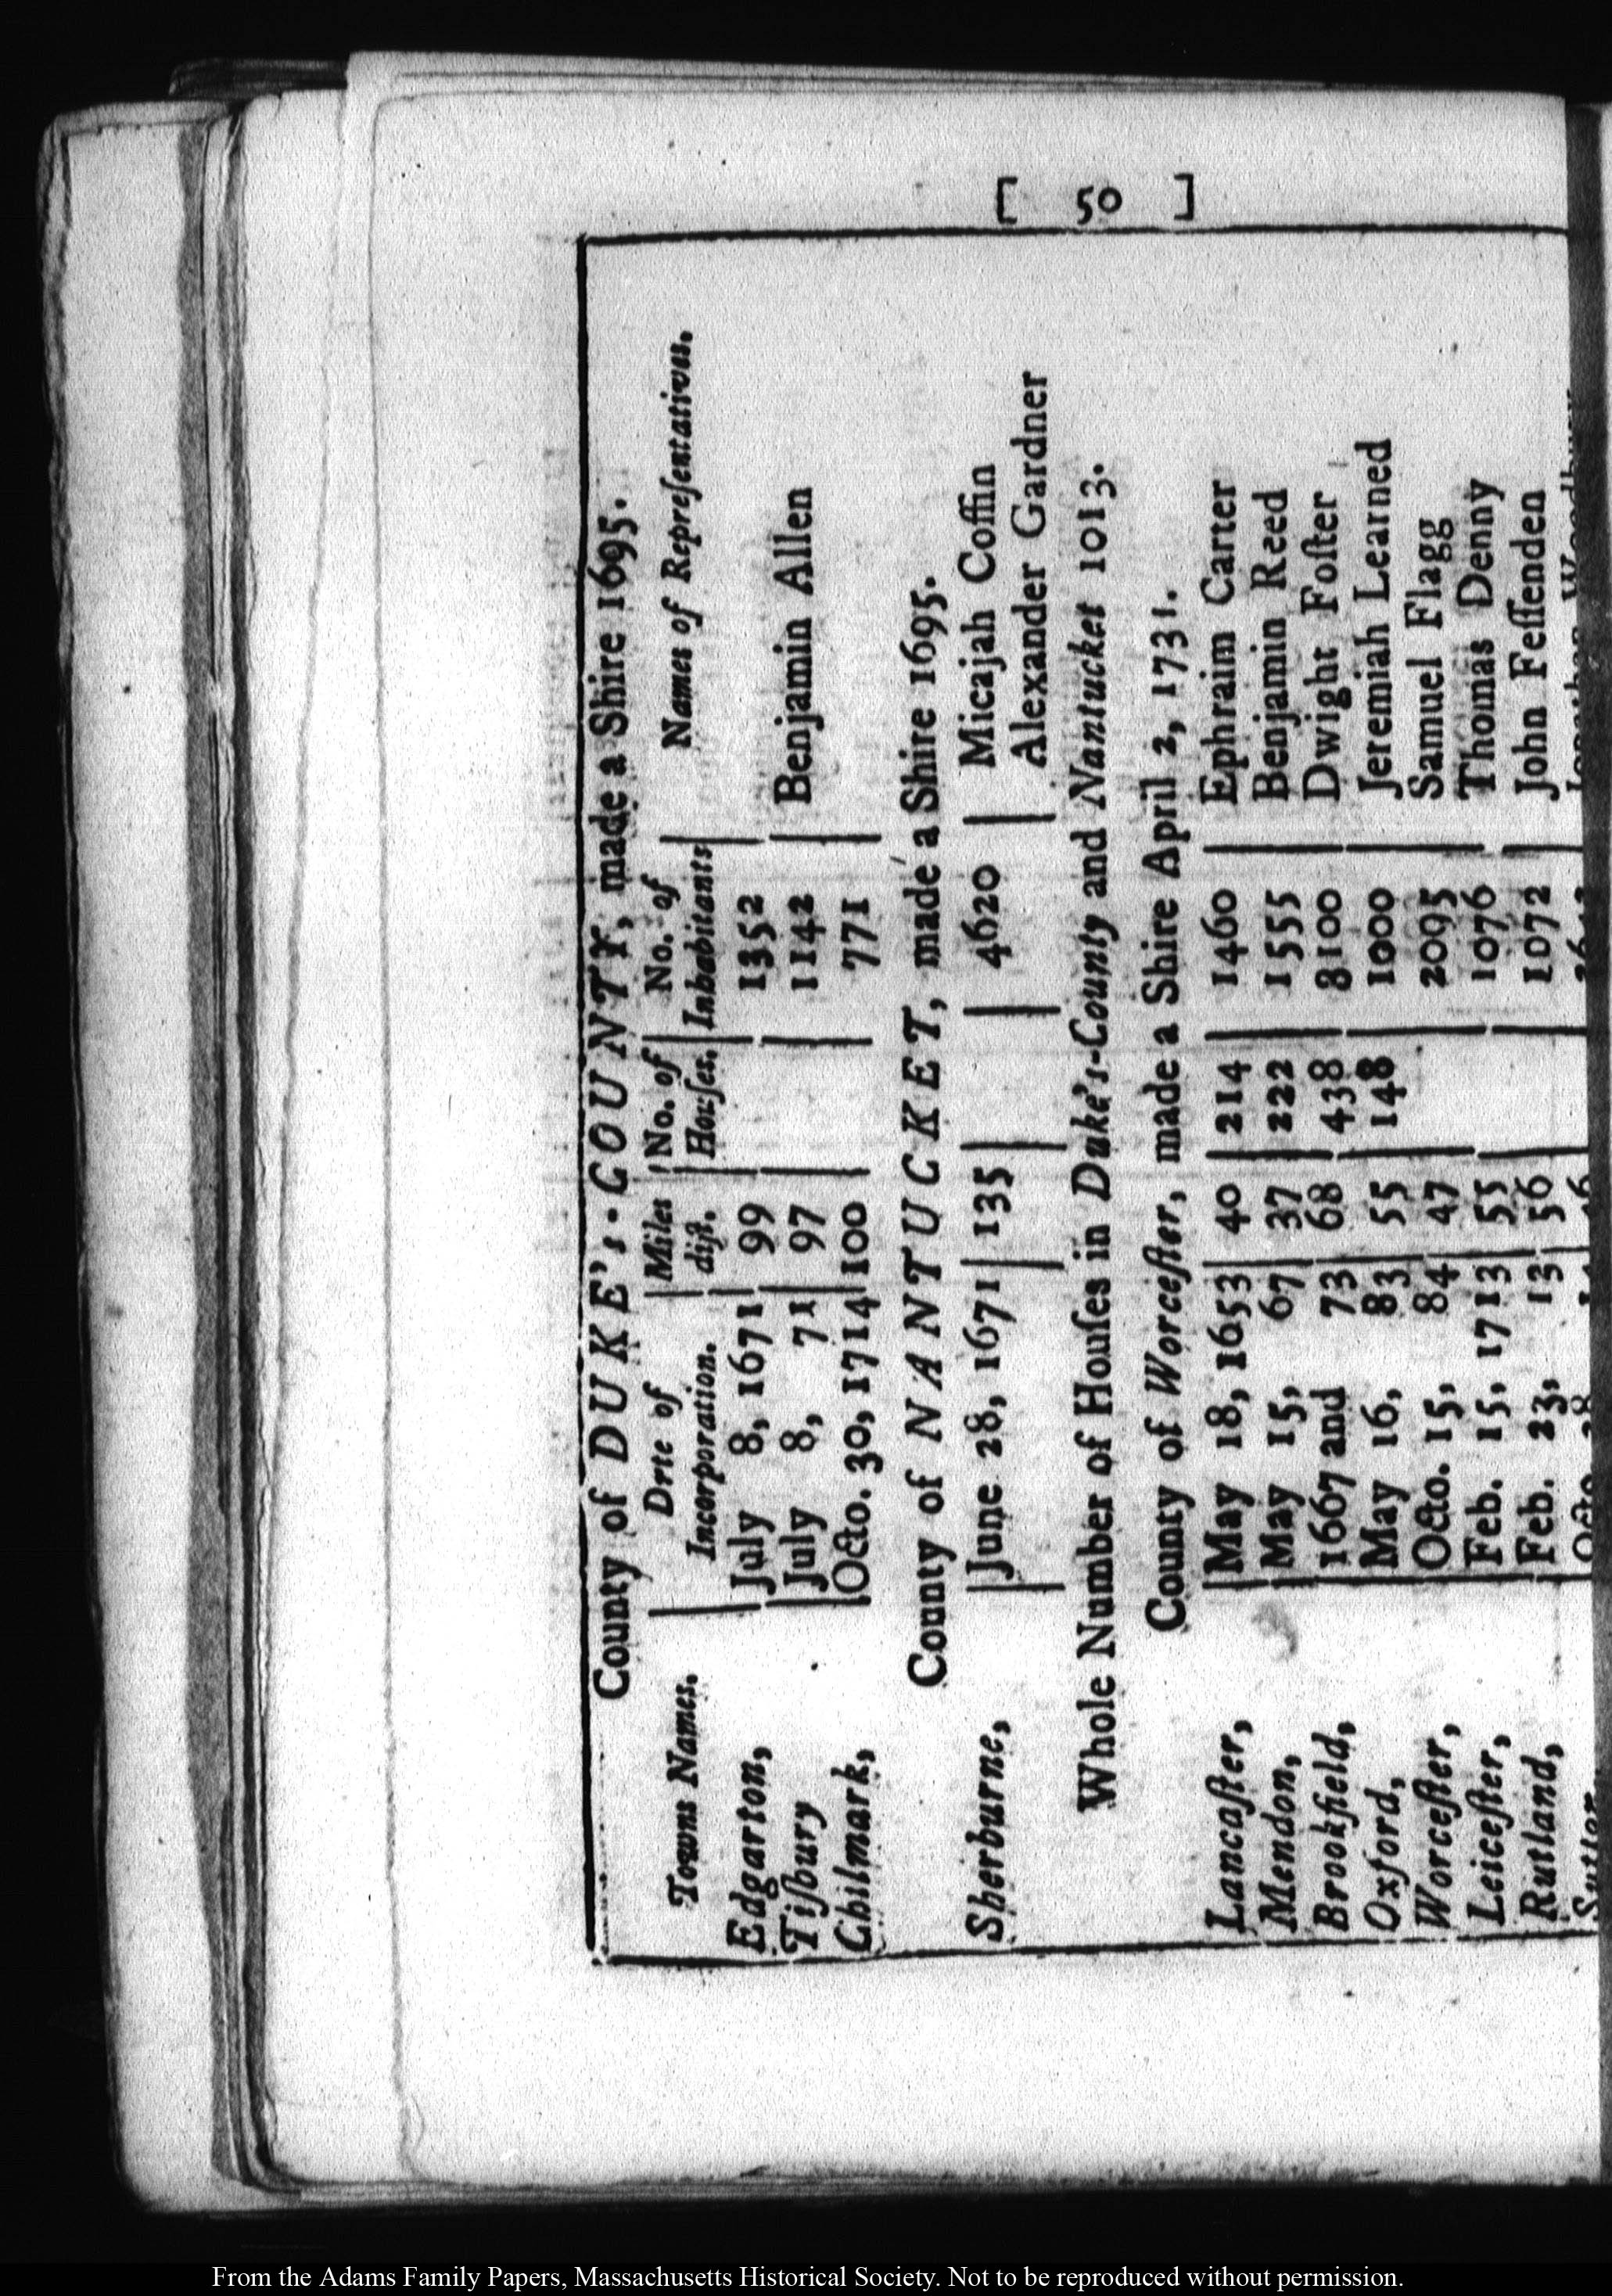 [ 50 ]
County of DUKE's-COUNTY, made a Shire 1695.
Towns Names. | Drte of Incorporation. | Miles dist. | No. of Houses. | No. of Inhabitants | Names of Representatives.
Edgarton, | July 8, 1671 | 99 | | 1352 |
Tiſbury | July 8, 71 | 97 | | 1142 | Benjamin Allen
Chilmark, | Octo. 30, 1714 | 100 | | 771
County of NANTUCKET, made a Shire 1695.
Sherburne, | June 28, 1671 | 135 | | 4620 | Micajah Coffin
Alexander Gardner
Whole Number of Houſes in Duke's-County and Nantucket 1013.
County of Worceſter, made a Shire April 2, 1731.
Lancaſter, | May 18, 1653 | 40 | 214 | 1460 | Ephraim Carter
Mendon, | May 15, 67 | 37 | 222 | 1555 | Benjamin Reed
Brookfield, | 1667 and 73 | 68 | 438 | 3100 | Dwight Foſter
Oxford, | May 16, 83 | 55 | 148 | 1000 | Jeremiah Learned
Worceſter, | Octo. 15, 84 | 47 | | 2095 | Samuel Flagg
Leiceſter, | Feb. 15, 1713 | 55 | | 1076 | Thomas Denny
Rutland, | Feb. 23, 13 | 56 | | 1072 | John Feſſenden
From the Adams Family Papers, Massachusetts Historical Society. Not to be reproduced without permission.